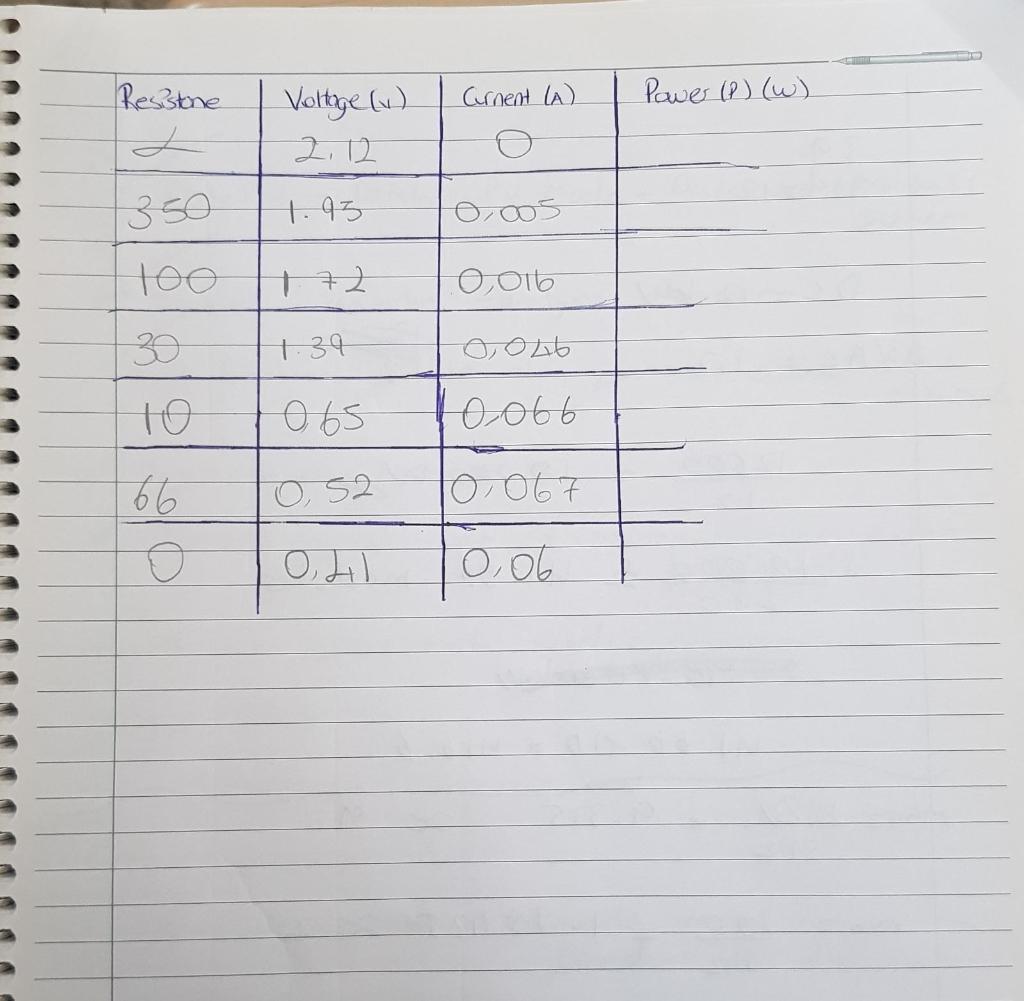 Resistone Voltage (v) Current (A) Power (P) (W)
∞ 2.12 0
350 1.93 0,005
100 1.72 0,016
30 1.39 0,046
10 0,65 0,066
66 0,52 0,067
0 0,41 0,06